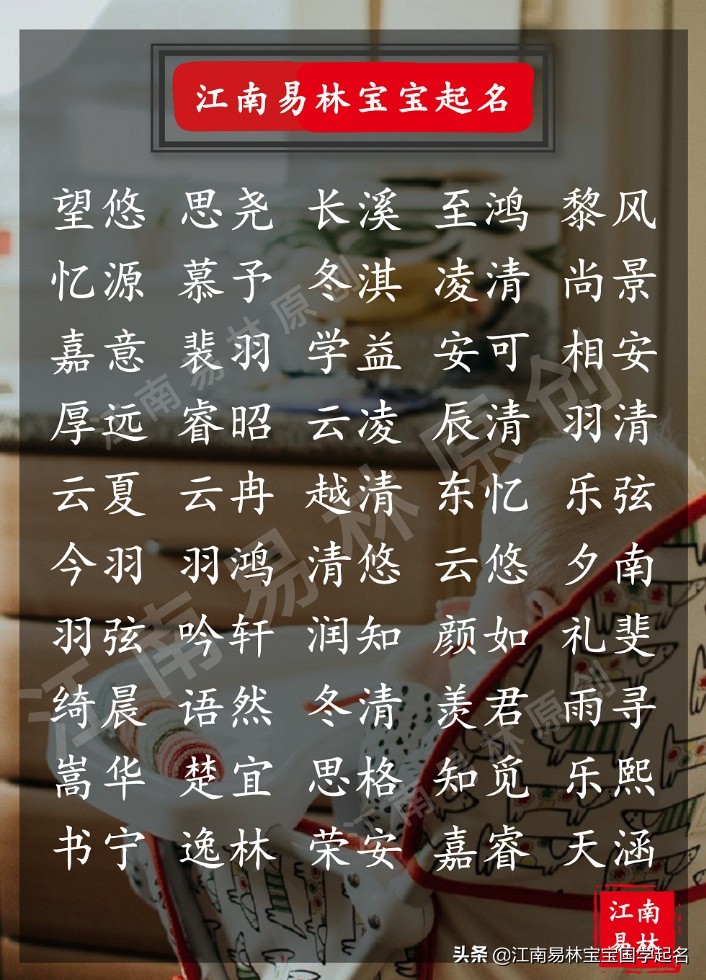 江南易林宝宝起名
望悠 思尧 长溪 至鸿 黎风
忆源 慕予 冬淇 凌清 尚景
嘉意 裴羽 学益 安可 相安
厚远 睿昭 云凌 辰清 羽清
云夏 云冉 越清 东忆 乐弦
今羽 羽鸿 清悠 云悠 夕南
羽弦 吟轩 润知 颜如 礼斐
绮晨 语然 冬清 羡君 雨寻
嵩华 楚宜 思格 知觅 乐熙
书宁 逸林 荣安 嘉睿 天涵
江南易林原创
江南易林原创
江南易林原创
江南
易林
头条 @江南易林宝宝国学起名